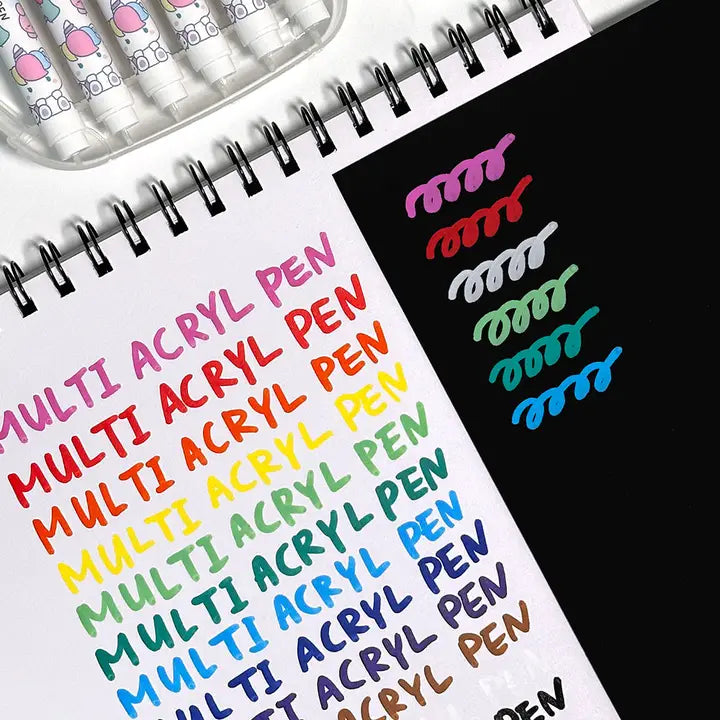 PEN
MULTI ACRYL PEN
MULTI ACRYL PEN
MULTI ACRYL PEN
MULTI ACRYL PEN
MULTI ACRYL PEN
MULTI ACRYL PEN
MULTI ACRYL PEN
MULTI ACRYL PEN
TI ACRYL PEN
ACRYL PEN
PEN
PEN